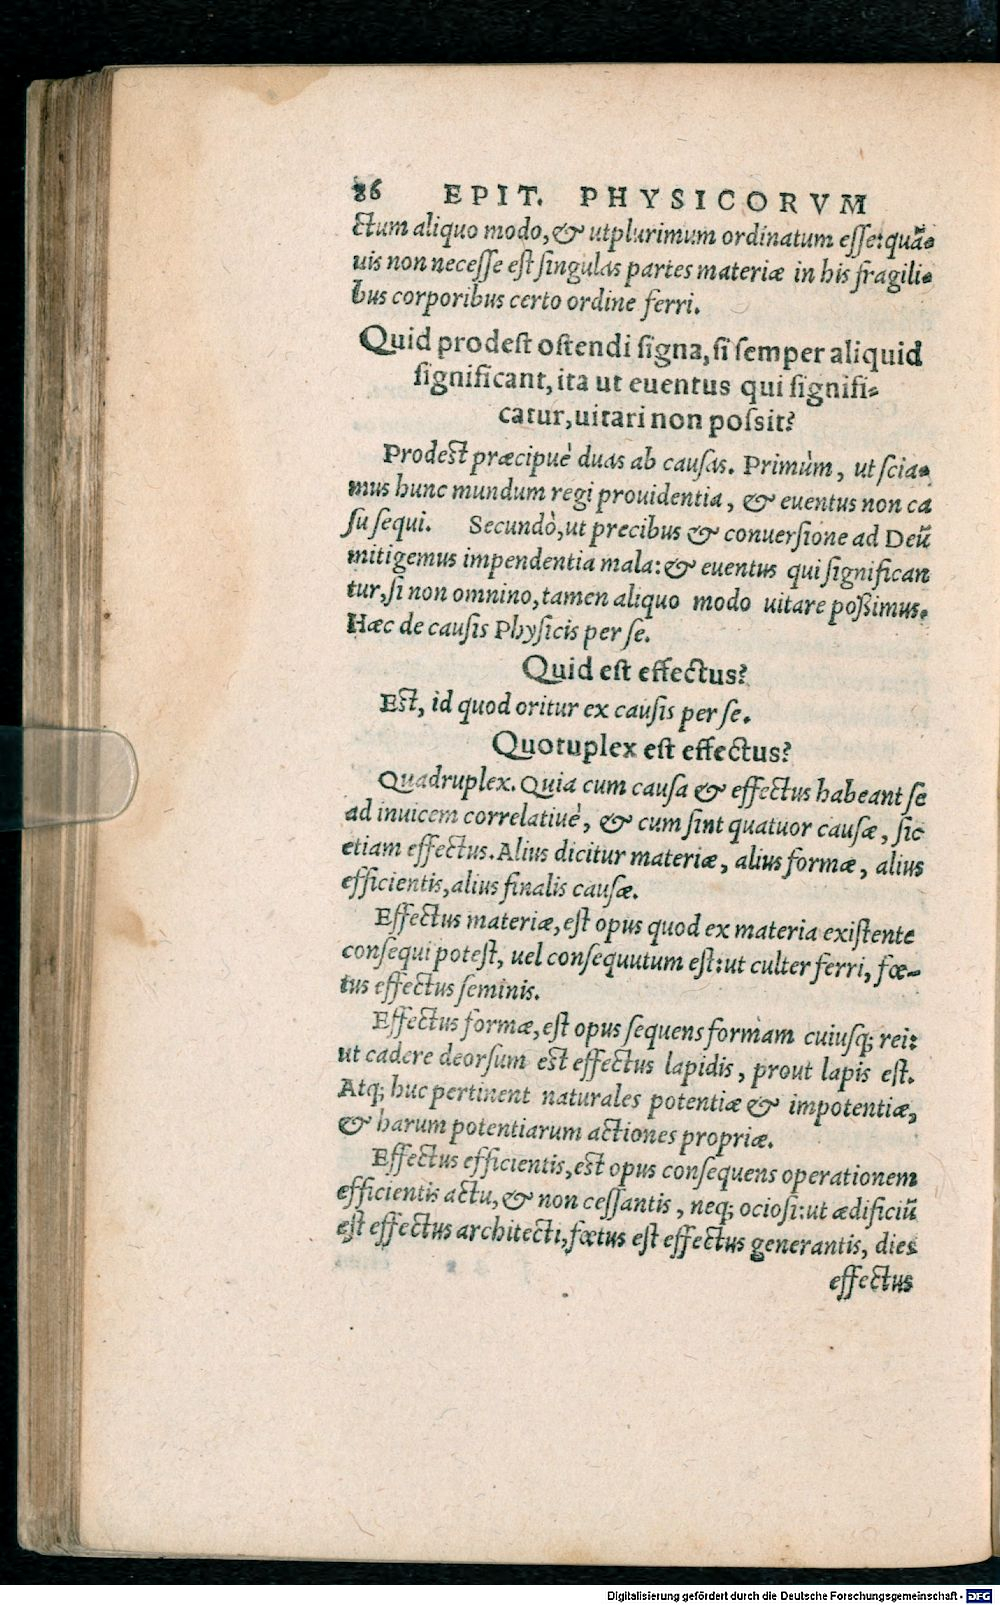 86 EPIT. PHYSICORVM
ctum aliquo modo, & utplurimum ordinatum esse: quã-
uis non necesse est singulas partes materiæ in his fragili-
bus corporibus certo ordine ferri.
Quid prodest ostendi signa, si semper aliquid
significant, ita ut euentus qui signifi-
catur, uitari non possit?
Prodest præcipuè duas ab causas. Primùm, ut scia-
mus hunc mundum regi prouidentia, & euentus non ca
su sequi. Secundò, ut precibus & conuersione ad Deũ
mitigemus impendentia mala: & euentus qui significan
tur, si non omnino, tamen aliquo modo uitare possimus.
Hæc de causis Physicis per se.
Quid est effectus?
Est, id quod oritur ex causis per se.
Quotuplex est effectus?
Quadruplex. Quia cum causa & effectus habeant se
ad inuicem correlatiuè, & cum sint quatuor causæ, sic
etiam effectus. Alius dicitur materiæ, alius formæ, alius
efficientis, alius finalis causæ.
Effectus materiæ, est opus quod ex materia existente
consequi potest, uel consequutum est: ut culter ferri, fœ-
tus effectus seminis.
Effectus formæ, est opus sequens formam cuiusq; rei:
ut cadere deorsum est effectus lapidis, prout lapis est.
Atq; huc pertinent naturales potentiæ & impotentiæ,
& harum potentiarum actiones propriæ.
Effectus efficientis, est opus consequens operationem
efficientis actu, & non cessantis, neq; ociosi: ut ædificiũ
est effectus architecti, fœtus est effectus generantis, dies
effectus
Digitalisierung gefördert durch die Deutsche Forschungsgemeinschaft - DFG